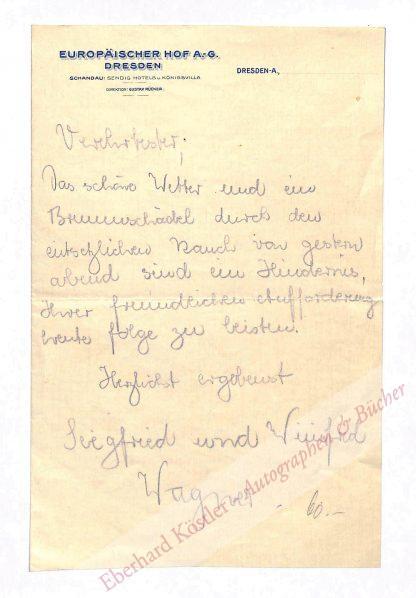 EUROPÄISCHER HOF A.-G.
DRESDEN
SCHANDAU: SENDIG HOTELS U. KÖNIGSVILLA
DIREKTION: GUSTAV HÜCKER
DRESDEN-A.,
Verehrtester,
Das schöne Wetter und ein
Brummschädel durch den
entsetzlichen Rauch von gestern
abend sind ein Hindernis,
Ihrer freundlichen Aufforderung
heute folge zu leisten.
Herzlichst ergebenst
Siegfried und Winifred
Wagner.
60.-
Eberhard Köstler - Autographen & Bücher